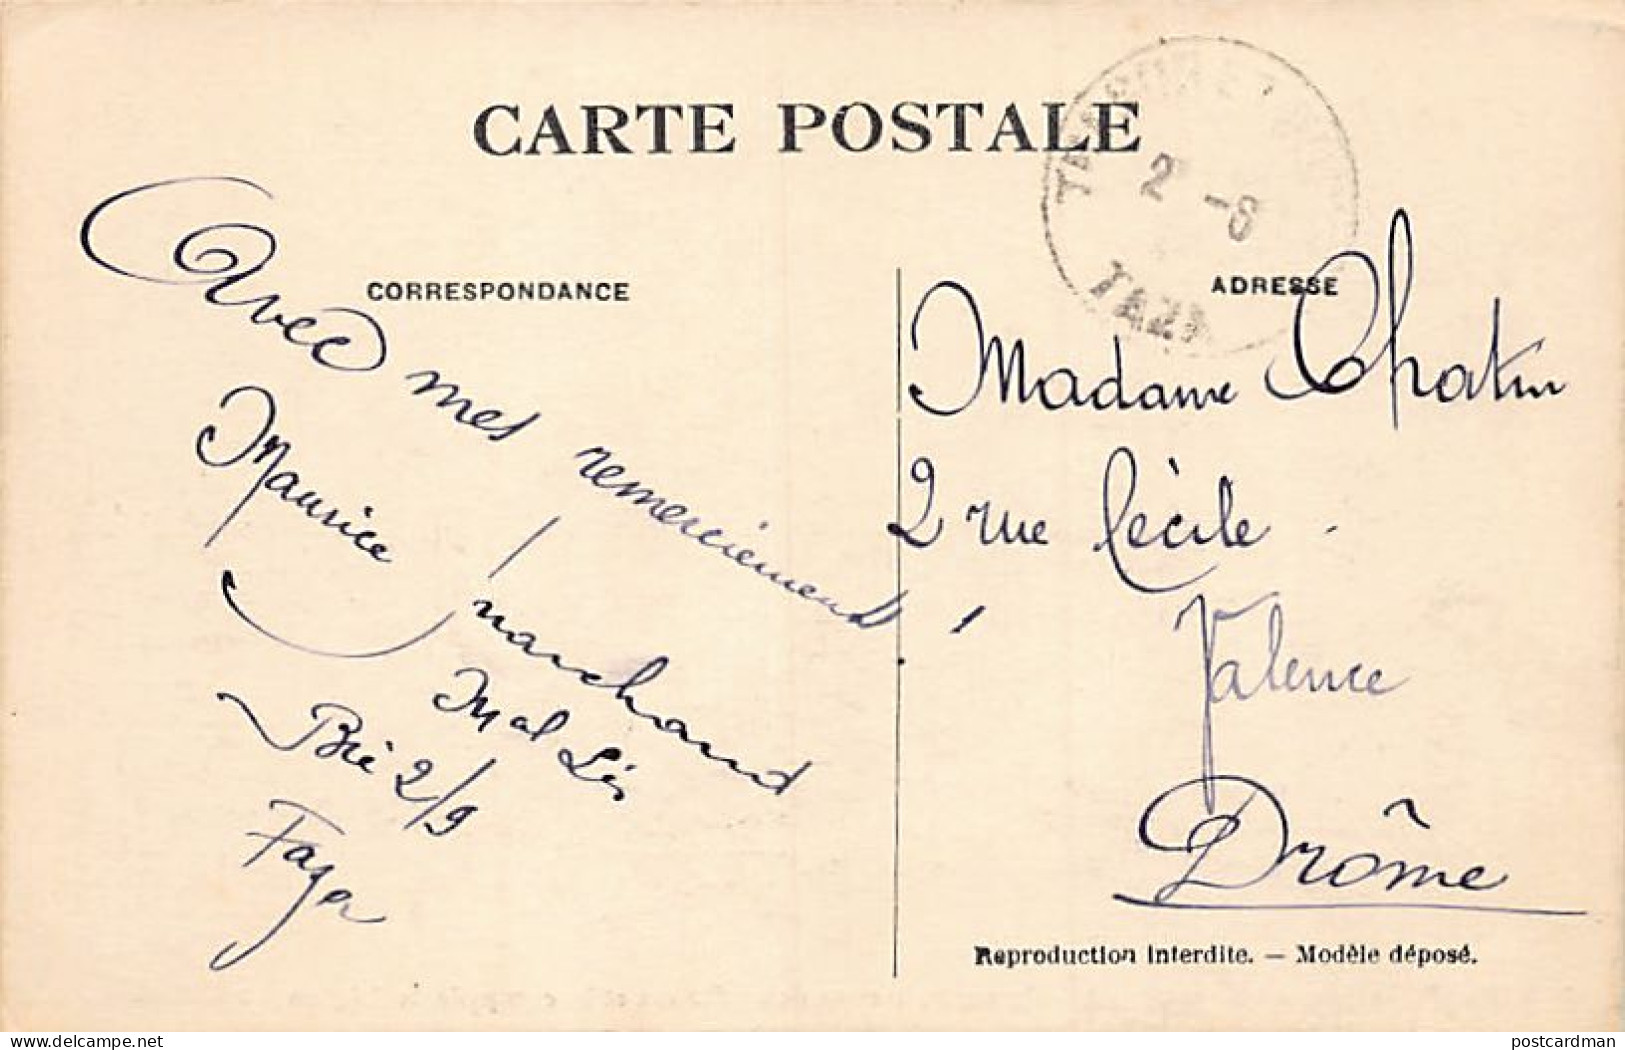 CARTE POSTALE
2 -6
TAZA
CORRESPONDANCE
Avec mes remerciements
Maurice
marchand
Mal Lis
Bie 2/9
Faza
ADRESSE
Madame Chatin
2 rue Cécile
Valence
Drôme
Reproduction Interdite. — Modèle déposé.
delcampe.net
postcardman